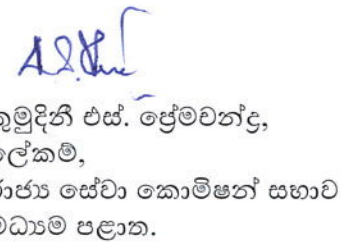 කුමුදිනී එස්. ප්‍රේමචන්ද්‍ර,
ලේකම්,
රාජ්‍ය සේවා කොමිෂන් සභාව
මධ්‍යම පළාත.